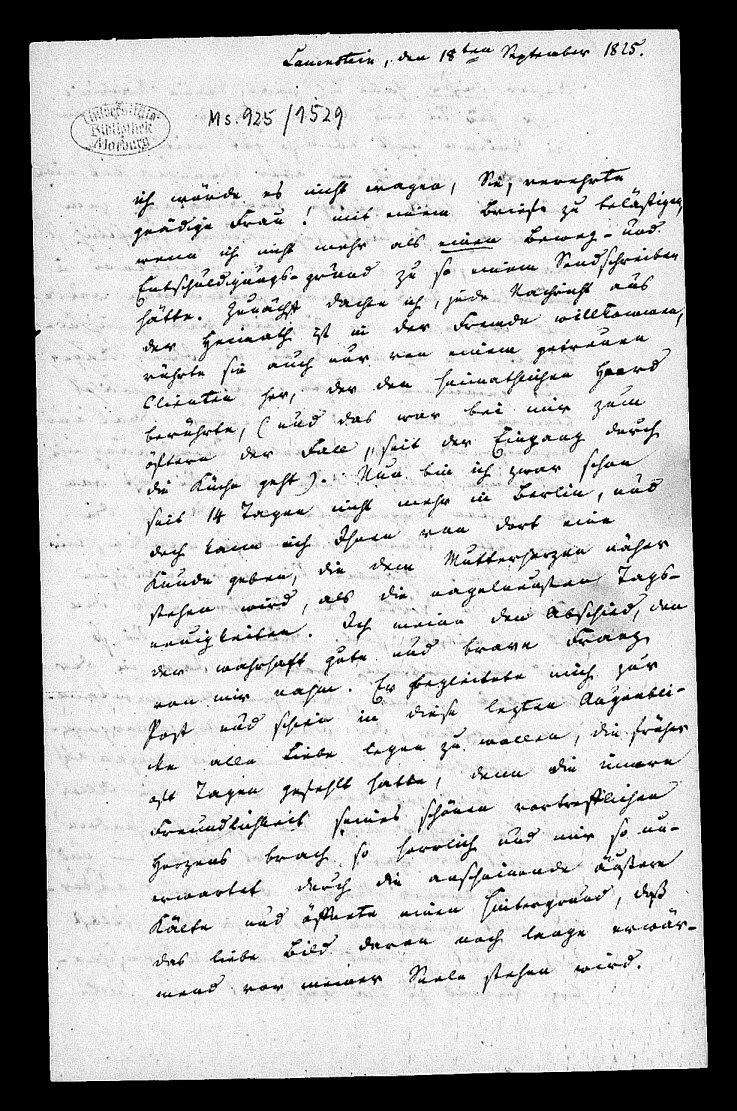 Lauenstein, den 18ten September 1825.
Universitäts-
Bibliothek
Marburg
Ms. 925/1529
ich würde es nicht wagen, Sie, verehrte
gnädige Frau! mit einem Briefe zu belästigen,
wenn ich nicht mehr als einen Beweg- und
Entschuldigungs-grund zu so einem Sendschreiben
hätte. Zunächst dachte ich, jede Nachricht aus
der Heimath ist in der Fremde willkommen,
rührte sie auch nur von einem getreuen
Clienten her, der den heimathlichen Heerd
berührte, (und das war bei mir zum
öftern der Fall, seit der Eingang durch
die Küche geht). Nun bin ich zwar schon
seit 14 Tagen nicht mehr in Berlin, und
doch kann ich Ihnen von dort eine
Kunde geben, die dem Mutterherzen näher
stehen wird, als die nagelneusten Tags-
neuigkeiten. Ich meine den Abschied, den
der wahrhaft gute und brave Franz
von mir nahm. Er begleitete mich zur
Post und schien in diese lezten Augenbli-
cke alle Liebe legen zu wollen, die früher
oft Tagen gefehlt hatte, denn die innere
Freundlichkeit seines schönen vortrefflichen
Herzens brach so herrlich und mir so un-
erwartet durch die anscheinende äußere
Kälte und öffnete einen Hintergrund, daß
das liebe Bild davon noch lange erwär-
mend vor meiner Seele stehen wird.